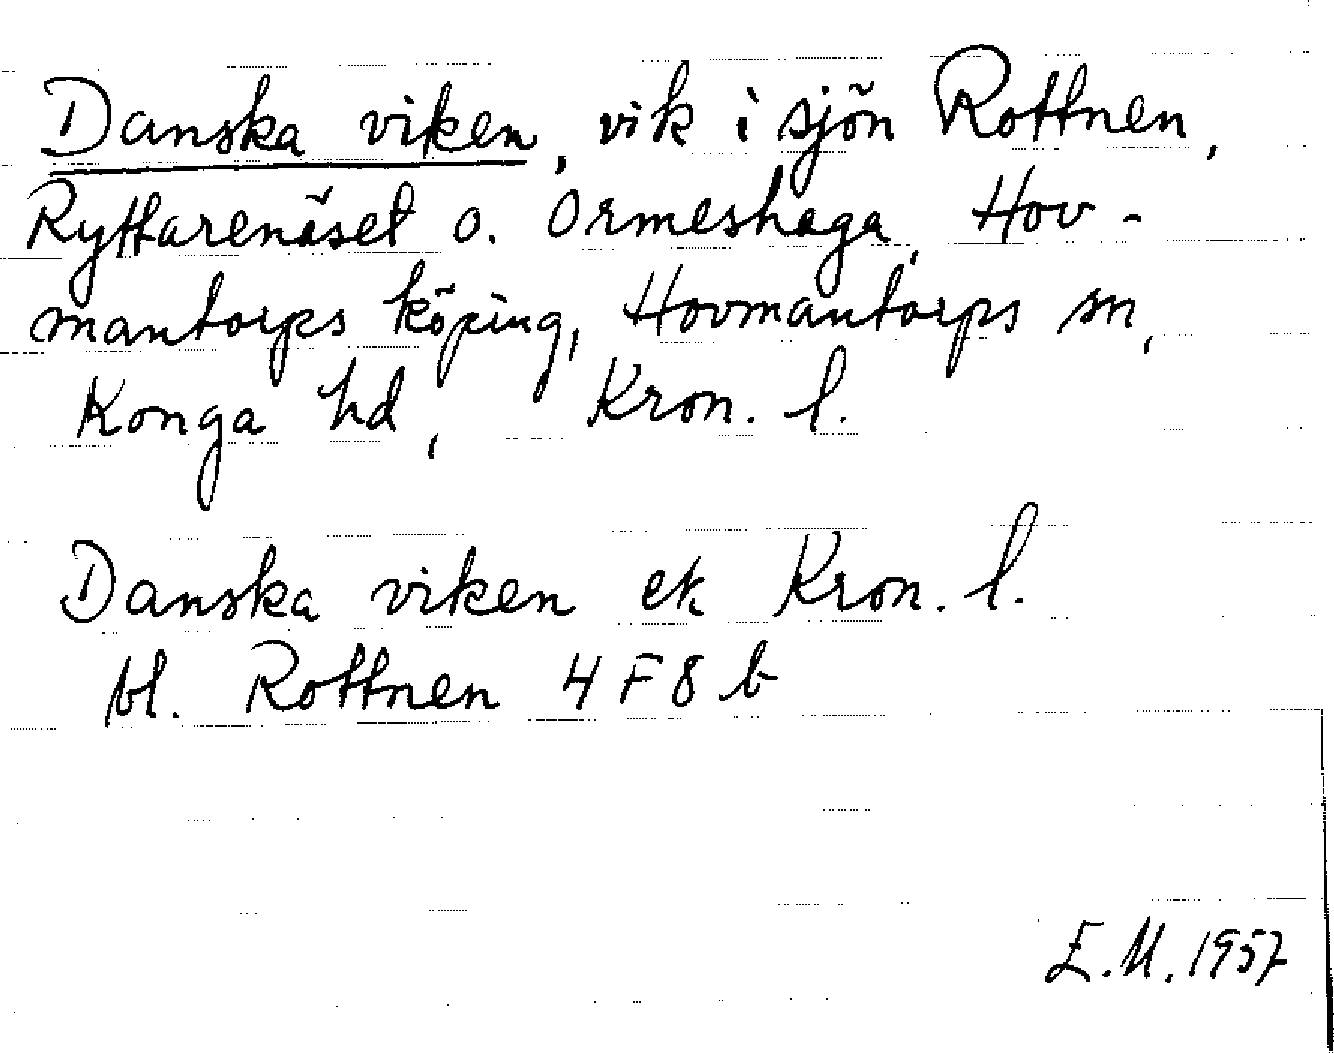 Danska viken, vik i sjön Rottnen,
Ryttarenäset o. Ormeshaga, Hov-
mantorps köping, Hovmantorps sn,
Konga hd, Kron. l.
Danska viken ek Kron. l.
bl. Rottnen 4 F 8 b
E.M. 1957